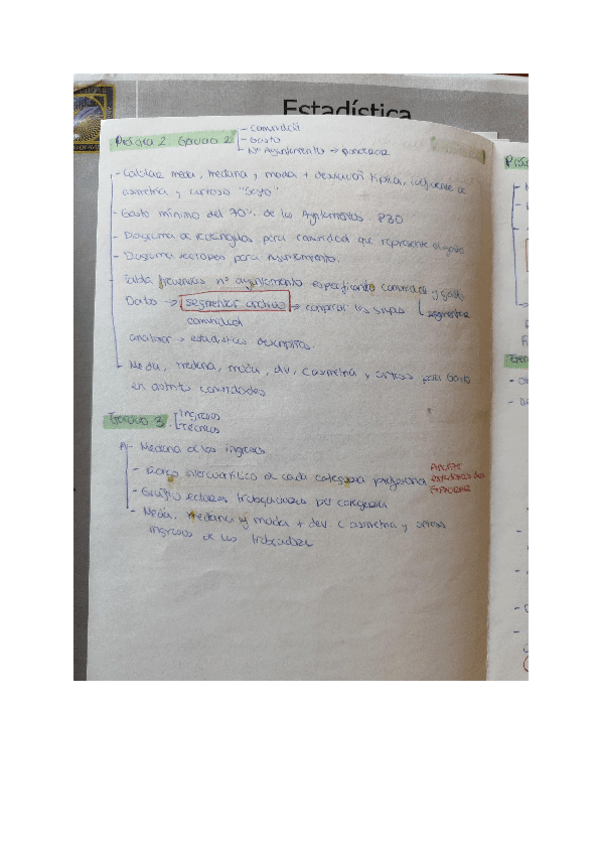 Estadística
Práctica 2. Ejercicio 2
- Comunidad
- Gasto
- Nº Ayuntamiento → ponderar
- Calcular media, mediana y moda + desviación típica, coeficiente de
asimetría y curtosis "Gasto"
- Gasto mínimo del 70% de los Ayuntamientos P30
- Diagrama de rectángulos para comunidad que represente el gasto
- Diagrama sectores para Ayuntamiento.
- Tabla frecuencias nº ayuntamiento especificando comunidad y gasto
Datos → segmentar archivo → comparar los grupos
segmentar
comunidad
analizar → estadísticos descriptivos.
- Media, mediana, moda, dv, C asimetría y curtosis para Gasto
en distintas comunidades
Ejercicio 3.
- Ingresos
- Técnicos
A - Mediana de los ingresos
- Rango intercuartílico de cada categoría profesional
- Gráfico sectores trabajadores por categoría
- Media, mediana y moda + dev. C asimetría y curtosis
ingresos de los trabajadores